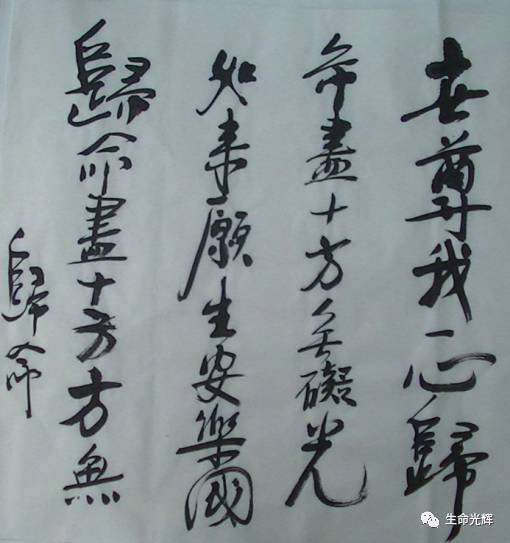 世尊我一心歸
命盡十方無礙光
如来願生安樂國
歸命盡十方方無
歸命
生命光辉